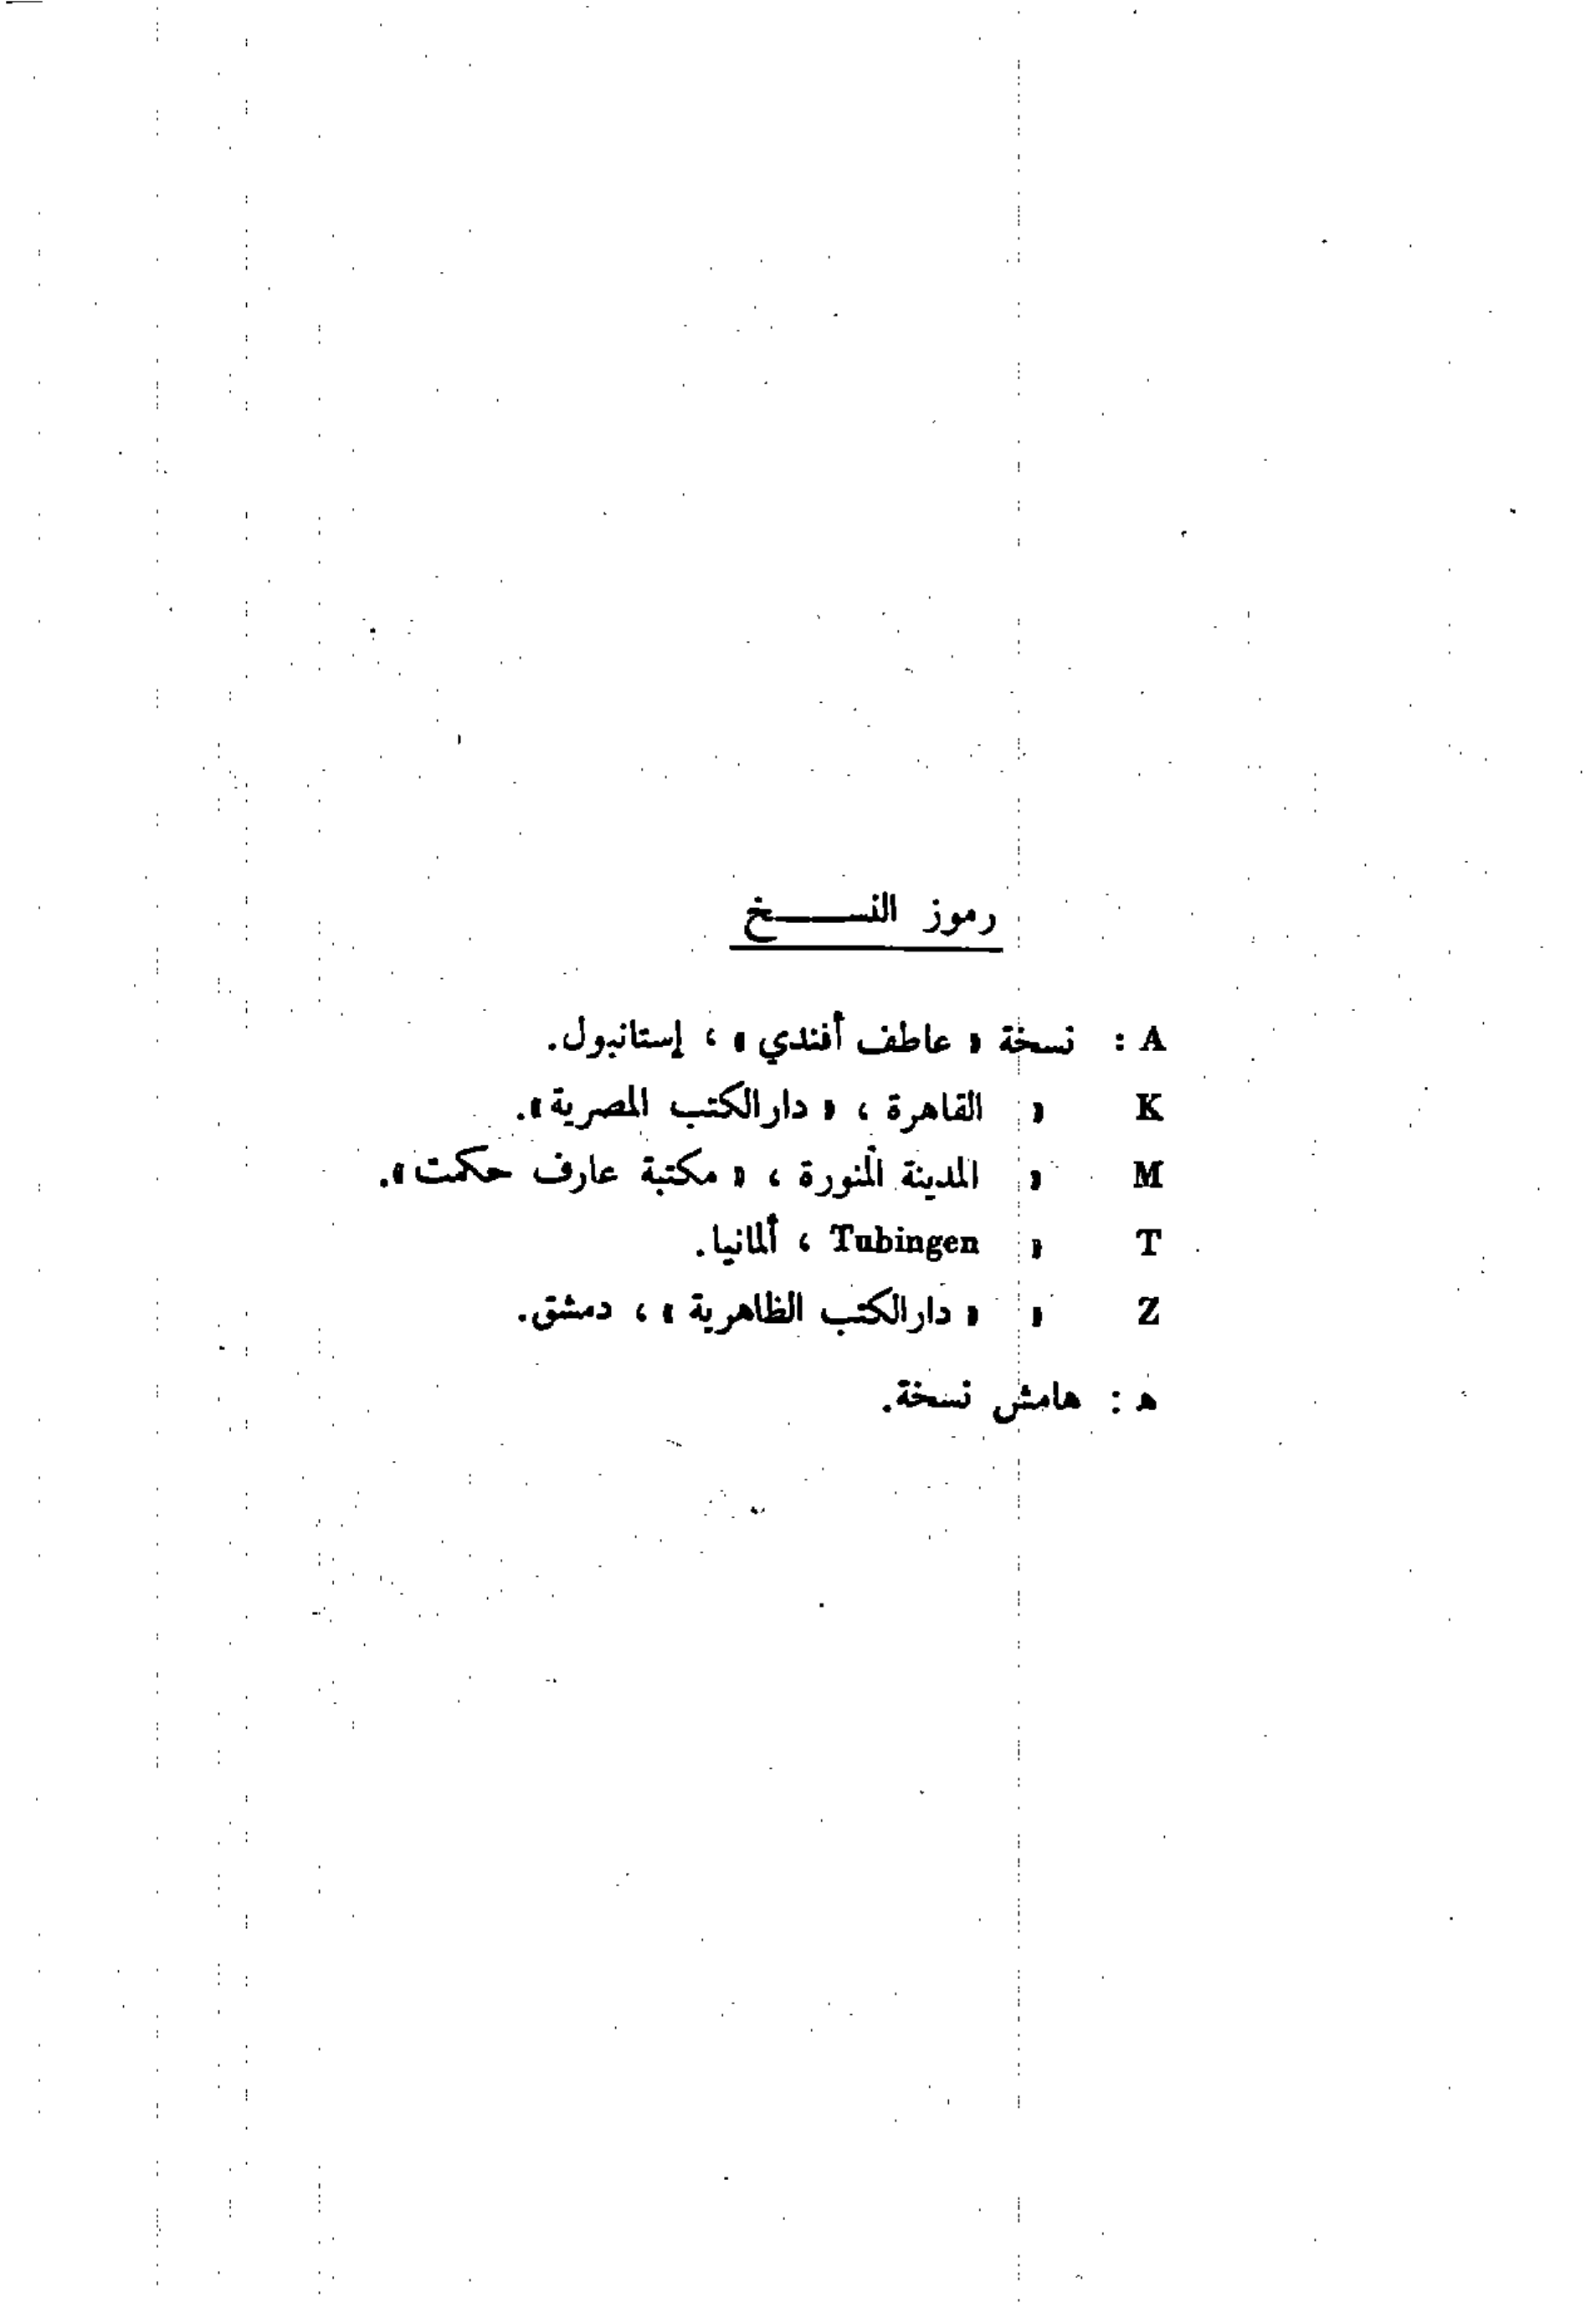 رموز النسـخ
A : نسخة « عاطف أفندي » ، إستانبول.
K » القاهرة ، « دار الكتب المصرية ».
M » المدينة المنورة ، « مكتبة عارف حكمت ».
T » Tubingen ، ألمانيا.
Z » « دار الكتب الظاهرية » ، دمشق.
ه : هامش نسخة.